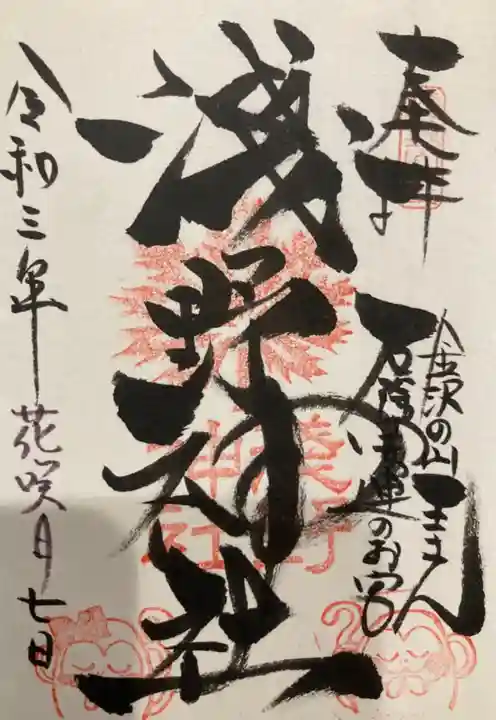 奉拝
金沢の山王さん
運のお宮
浅野神社
浅野
神社
令和三年花咲月七日